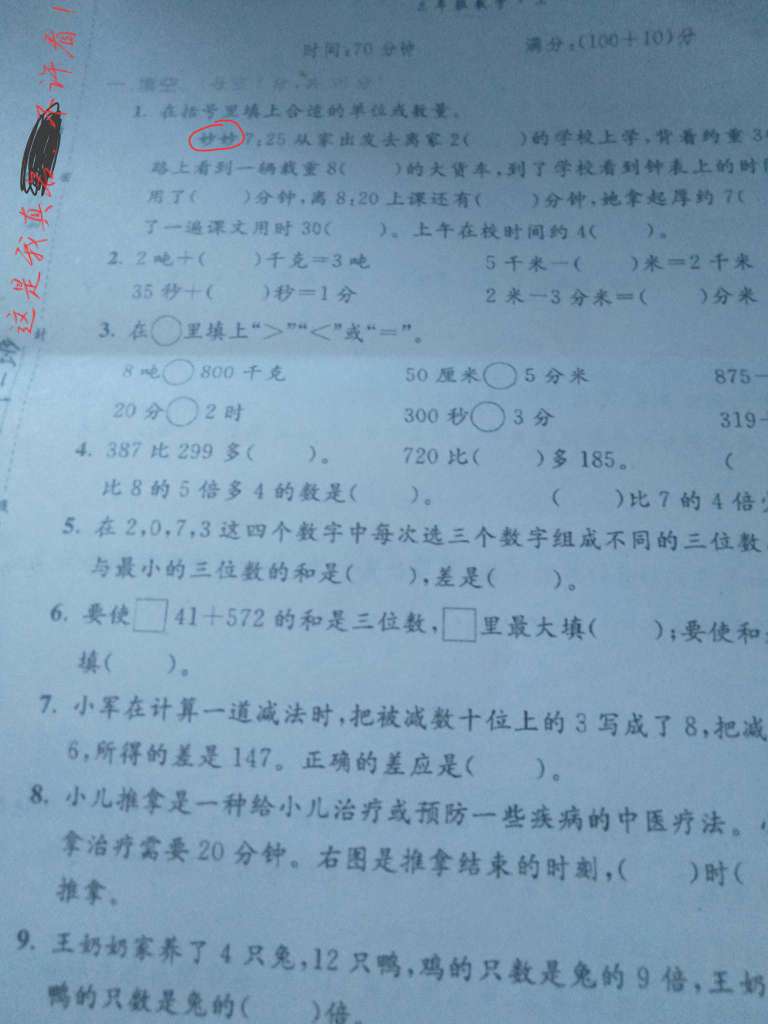 三年级数学·上
时间:70分钟 满分:(100+10)分
一 填空
1. 在括号里填上合适的单位或数量。
妙妙7:25从家出发去离家2( )的学校上学,背着约重3
路上看到一辆载重8( )的大货车,到了学校看到钟表上的时
用了( )分钟,离8:20上课还有( )分钟,她拿起厚约7(
了一遍课文用时30( )。上午在校时间约4( )。
2. 2吨+( )千克=3吨 5千米-( )米=2千米
35秒+( )秒=1分 2米-3分米=( )分米
3. 在○里填上“>”“<”或“=”。
8吨○800千克 50厘米○5分米 875-
20分○2时 300秒○3分 319
4. 387比299多( )。 720比( )多185。 (
比8的5倍多4的数是( )。 ( )比7的4倍
5. 在2,0,7,3这四个数字中每次选三个数字组成不同的三位数
与最小的三位数的和是( ),差是( )。
6. 要使□41+572的和是三位数,□里最大填( );要使和
填( )。
7. 小军在计算一道减法时,把被减数十位上的3写成了8,把减
6,所得的差是147。正确的差应是( )。
8. 小儿推拿是一种给小儿治疗或预防一些疾病的中医疗法。
拿治疗需要20分钟。右图是推拿结束的时刻,( )时(
推拿。
9. 王奶奶家养了4只兔,12只鸭,鸡的只数是兔的9倍,王奶
鸭的只数是兔的( )倍。
这是我真 不许看!
封